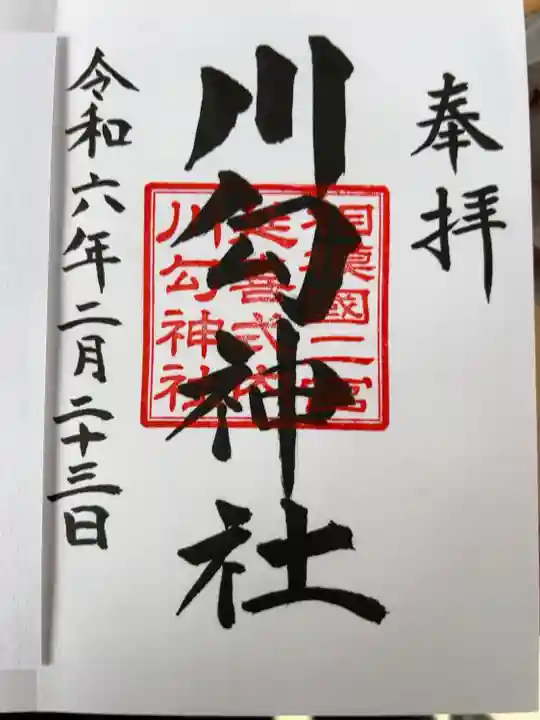 奉拝
川勾神社
相模國二宮
延喜式内
川勾神社
令和六年二月二十三日